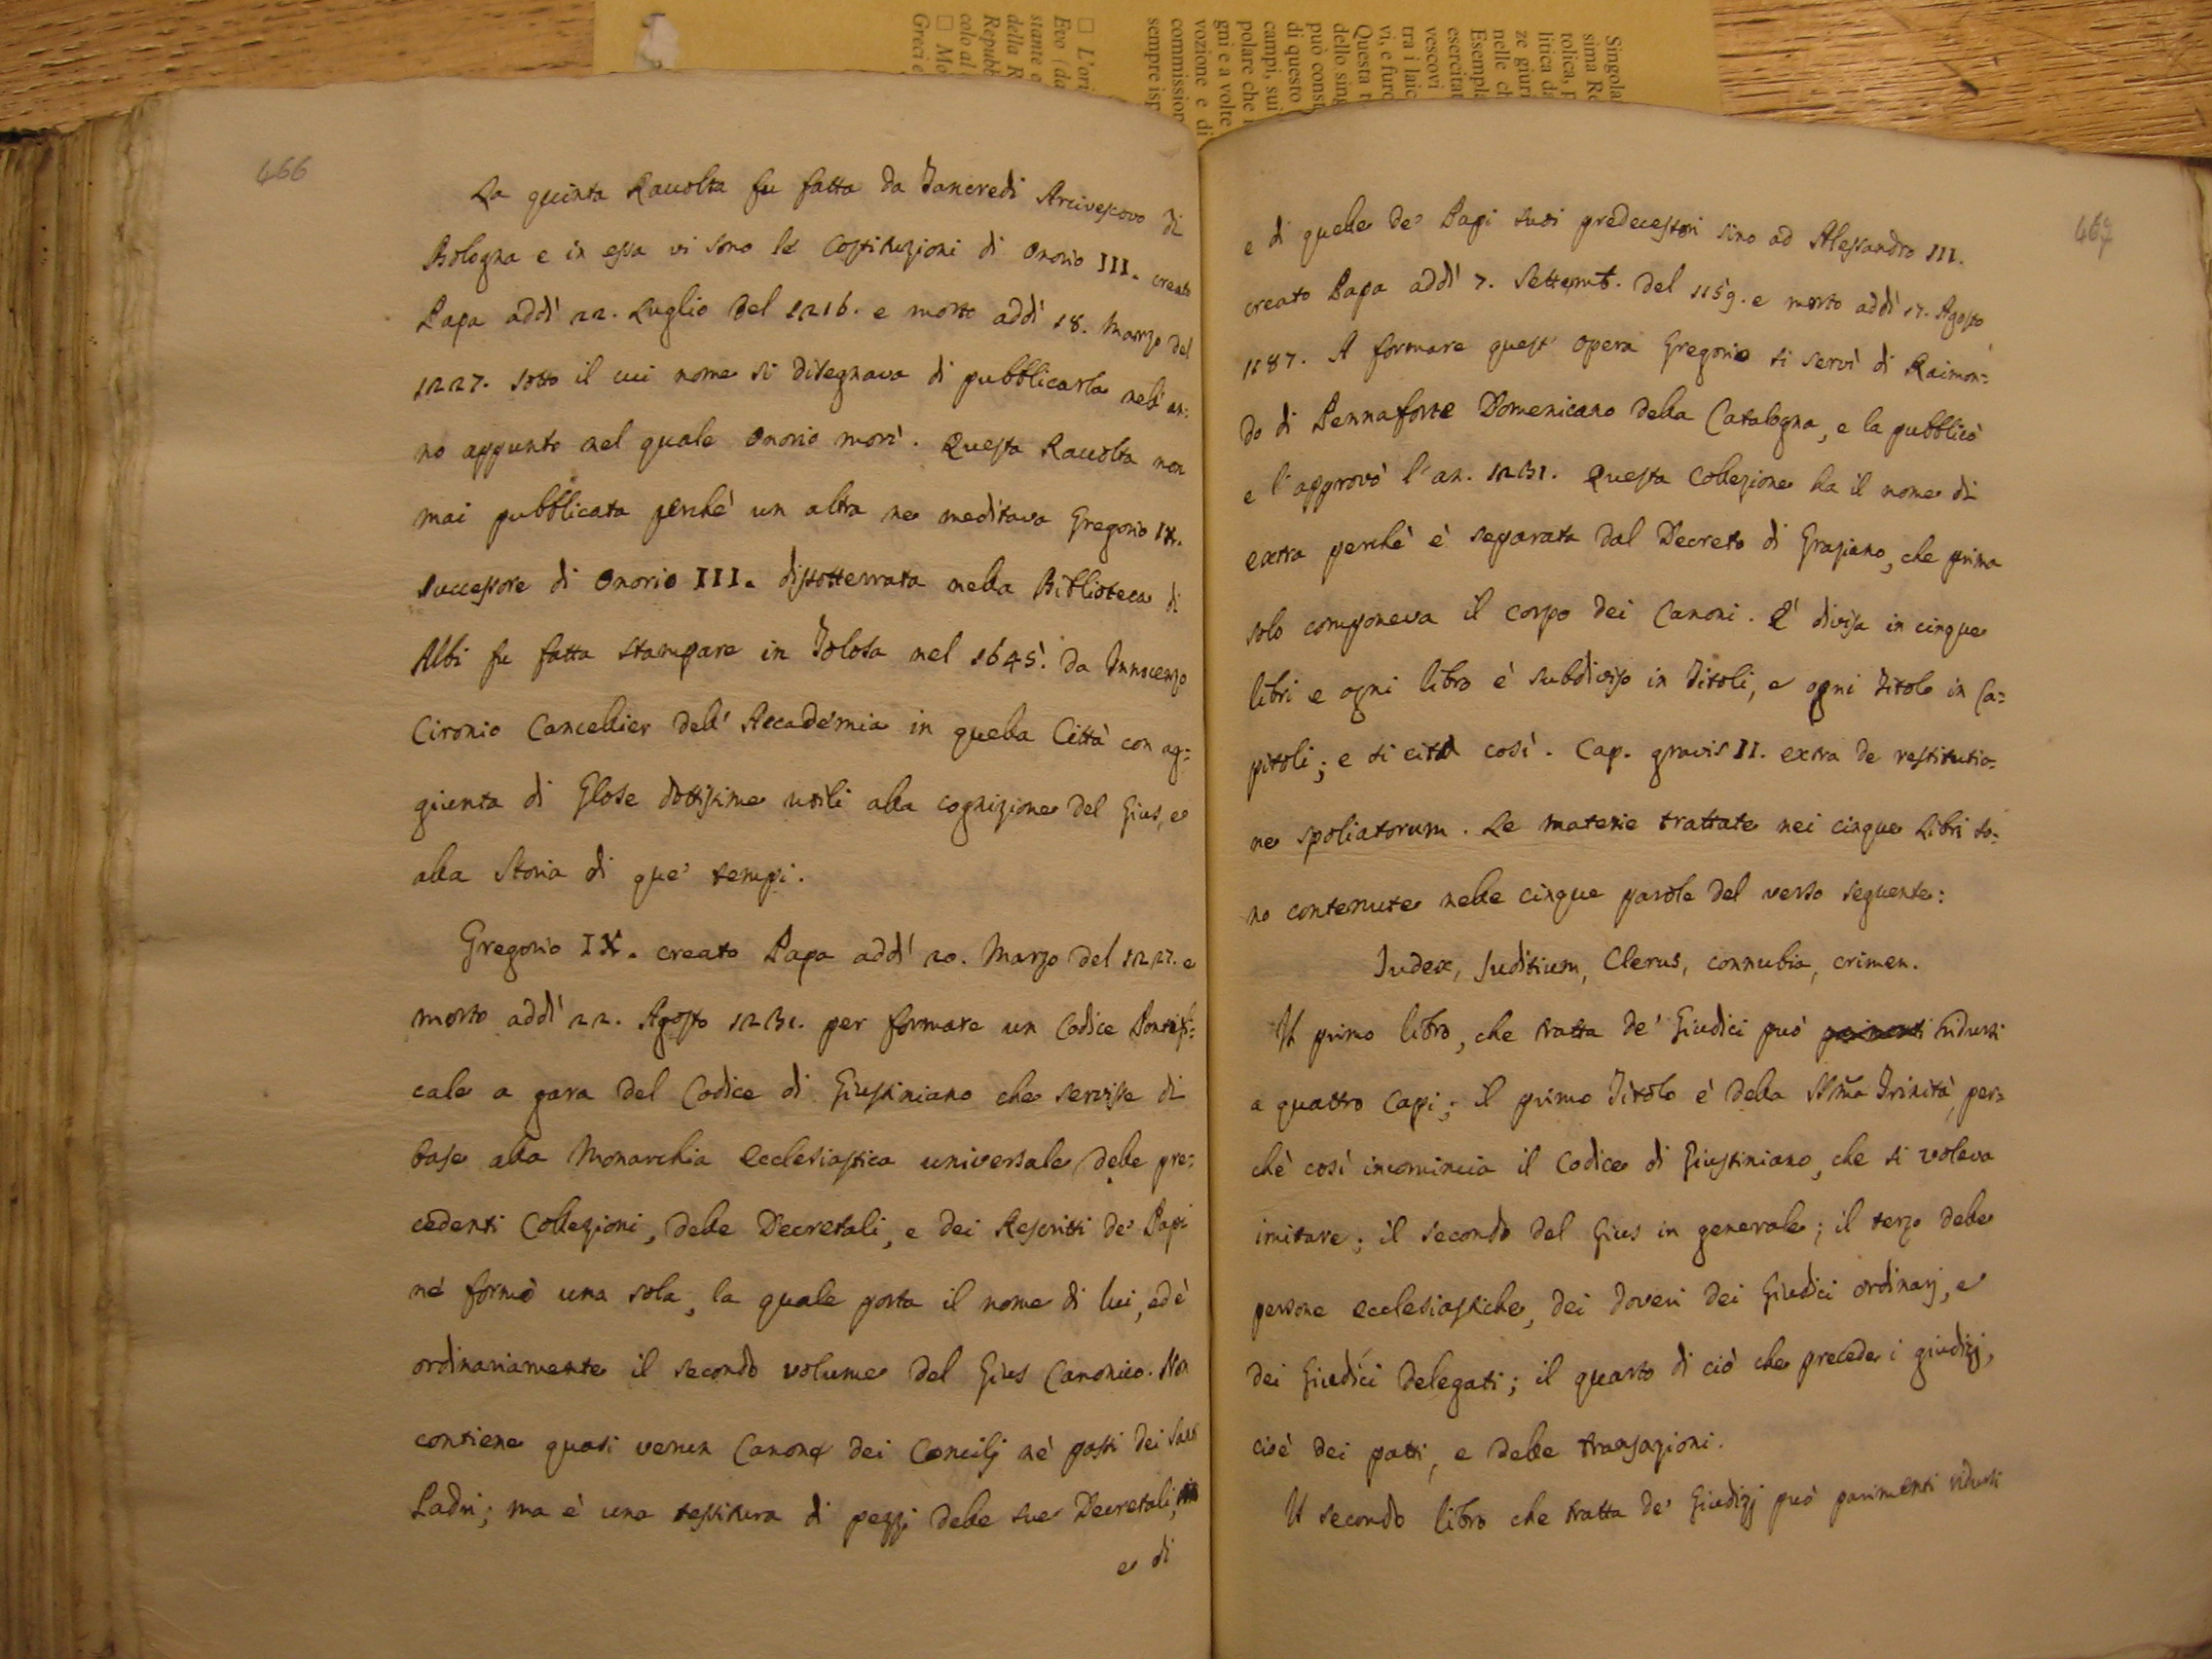 Singola
sima Re
tolica, p
litica da
ze giuri
nelle ch
Esempla
esercitat
vescovi
tra i laic
vi, e furo
Questa t
dello sing
può const
di questo
campi, sui
polare che
gni e a volte
vozione e di
commission
sempre isp
□ L'ori
Evo (da
stante e
della R
Repubb
colo al
□ Mo
Greci e
466
La quinta Raccolta fu fatta da Tancredi Arcivescovo di
Bologna e in essa vi sono le Costituzioni di Onorio III. creato
Papa addì 22. Luglio del 1216. e morto addì 18. Marzo del
1227. sotto il cui nome si disegnava di pubblicarla nell' an:
no appunto nel quale Onorio morì. Questa Raccolta non
mai pubblicata perchè un altra ne meditava Gregorio IX.
successore di Onorio III. dissotterrata nella Biblioteca di
Albi fu fatta stampare in Tolosa nel 1645. da Innocenzo
Cironio Cancellier dell' Accademia in quella Città con ag:
giunta di Glose dottissime utili alla cognizione del Gius, e
alla Storia di que' tempi.
Gregorio IX. creato Papa addì 20. Marzo del 1227. e
morto addì 22. Agosto 1231. per formare un Codice Pontifi:
cale a gara del Codice di Giustiniano che servisse di
base alla Monarchia Ecclesiastica universale delle pre:
cedenti Collezioni, delle Decretali, e dei Rescritti de' Papi
nè formò una sola, la quale porta il nome di lui, ed è
ordinariamente il secondo volume del Gius Canonico. Non
contiene quasi verun Canone dei Concilj nè passi dei Santi
Padri; ma è una tessitura di pezzi delle sue Decretali,
e di
467
e di quelle de' Papi suoi predecessori sino ad Alessandro III.
creato Papa addì 7. Settemb. del 1159. e morto addì 17. Agosto
1187. A formare quest' opera Gregorio si servì di Raimon=
do di Pennaforte Domenicano della Catalogna, e la pubblicò
e l'approvò l'an. 1231. Questa Collezione ha il nome di
extra perchè è separata dal Decreto di Graziano, che prima
solo componeva il corpo dei Canoni. E' divisa in cinque
libri e ogni libro è subdiviso in Titoli, e ogni Titolo in Ca=
pitoli; e si cita così. Cap. gravis II. extra de restitutio=
ne spoliatorum. Le materie trattate nei cinque Libri so=
no contenute nelle cinque parole del verso seguente:
Iudex, Juditium, Clerus, connubia, crimen.
Il primo libro, che tratta de' Giudici può ridursi
a quattro Capi; il primo Titolo è della SSma Trinità, per=
chè così incomincia il Codice di Giustiniano, che si voleva
imitare; il secondo del Gius in generale; il terzo delle
persone ecclesiastiche, dei doveri dei Giudici ordinarj, e
dei Giudici Delegati; il quarto di ciò che precede i giudizj,
cioè dei patti, e delle transazioni.
Il secondo libro che tratta de' Giudizj può parimenti ridursi